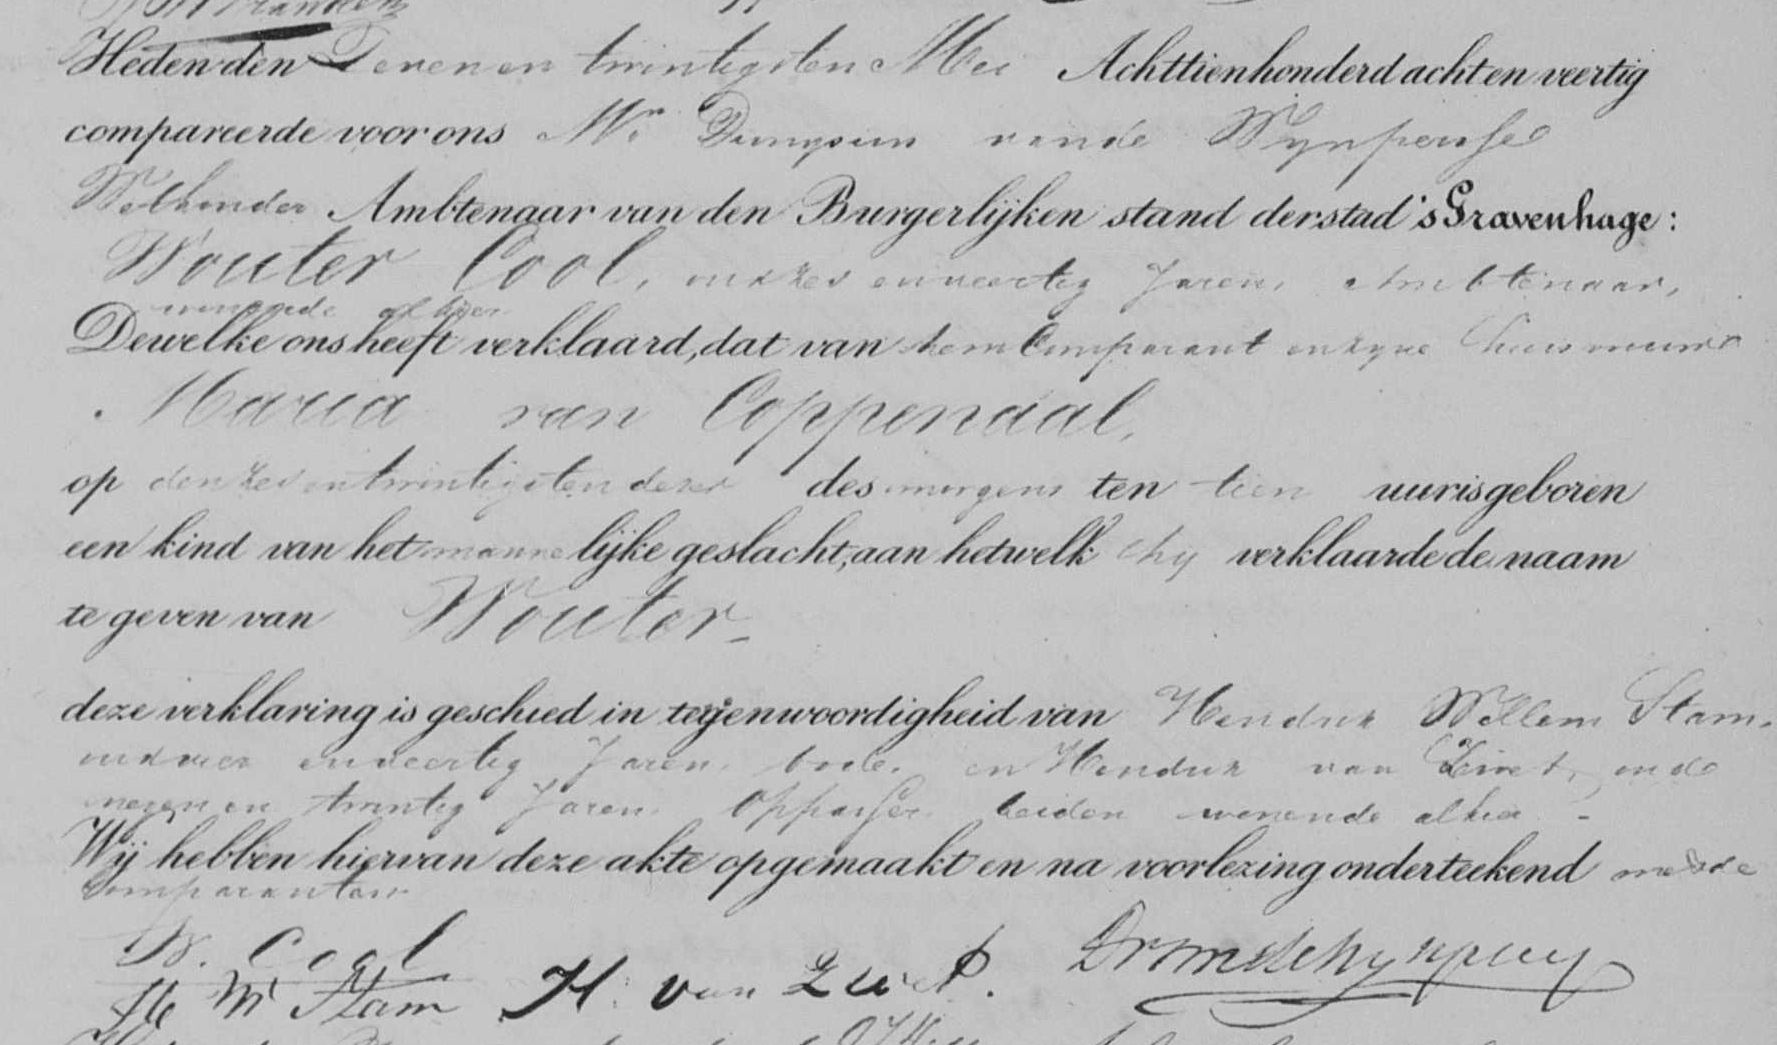 Heden den Zevenen twintigsten Mei Achttienhonderd achten veertig
compareerde voor ons Mr. van de Wynpersse
Wethouder Ambtenaar van den Burgerlijken stand der stad 's Gravenhage:
Wouter Cool, oud zes en veertig Jaren, Ambtenaar,
wonende alhier
Dewelke ons heeft verklaard, dat van hem Comparant en zyne Huisvrouw
Maria van Coppenaal,
op den zes en twintigsten dezer des morgens ten tien uur is geboren
een kind van het mannelijke geslacht, aan hetwelk hy verklaarde de naam
te geven van Wouter
deze verklaring is geschied in tegenwoordigheid van Hendrik Willem Stam,
oud vier en veertig Jaren, bode, en Hendrik van Zwet, oud
negen en twintig Jaren, Oppasser, beiden wonende alhier -
Wij hebben hiervan deze akte opgemaakt en na voorlezing onderteekend met de
Comparanten
W. Cool
H W Stam H. van Zwet.